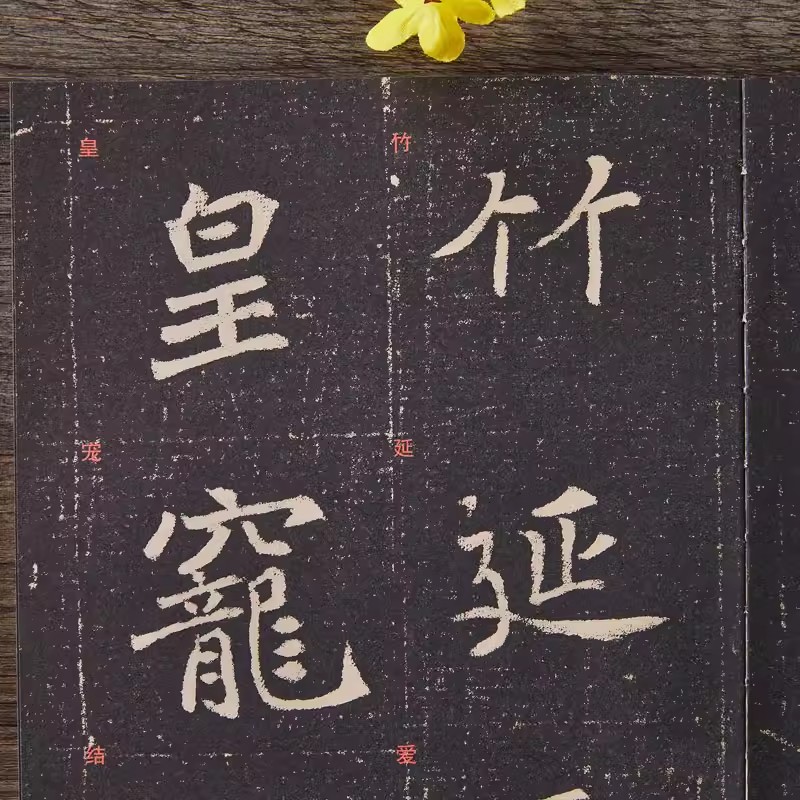 竹
竹
延
延
爱
皇
皇
宠
寵
结